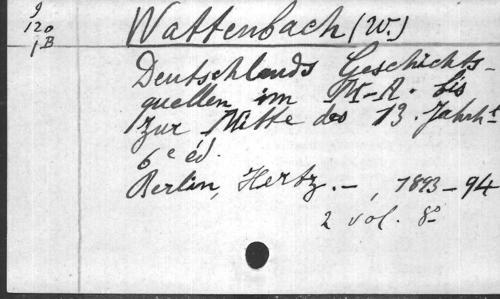 9
120
1B
Wattenbach (W.)
Deutschlands Geschichts-
quellen im M-A. bis
zur Mitte des 13. Jahrhts
6e éd.
Berlin, Hertz. -, 1893-94
2 vol. 8°